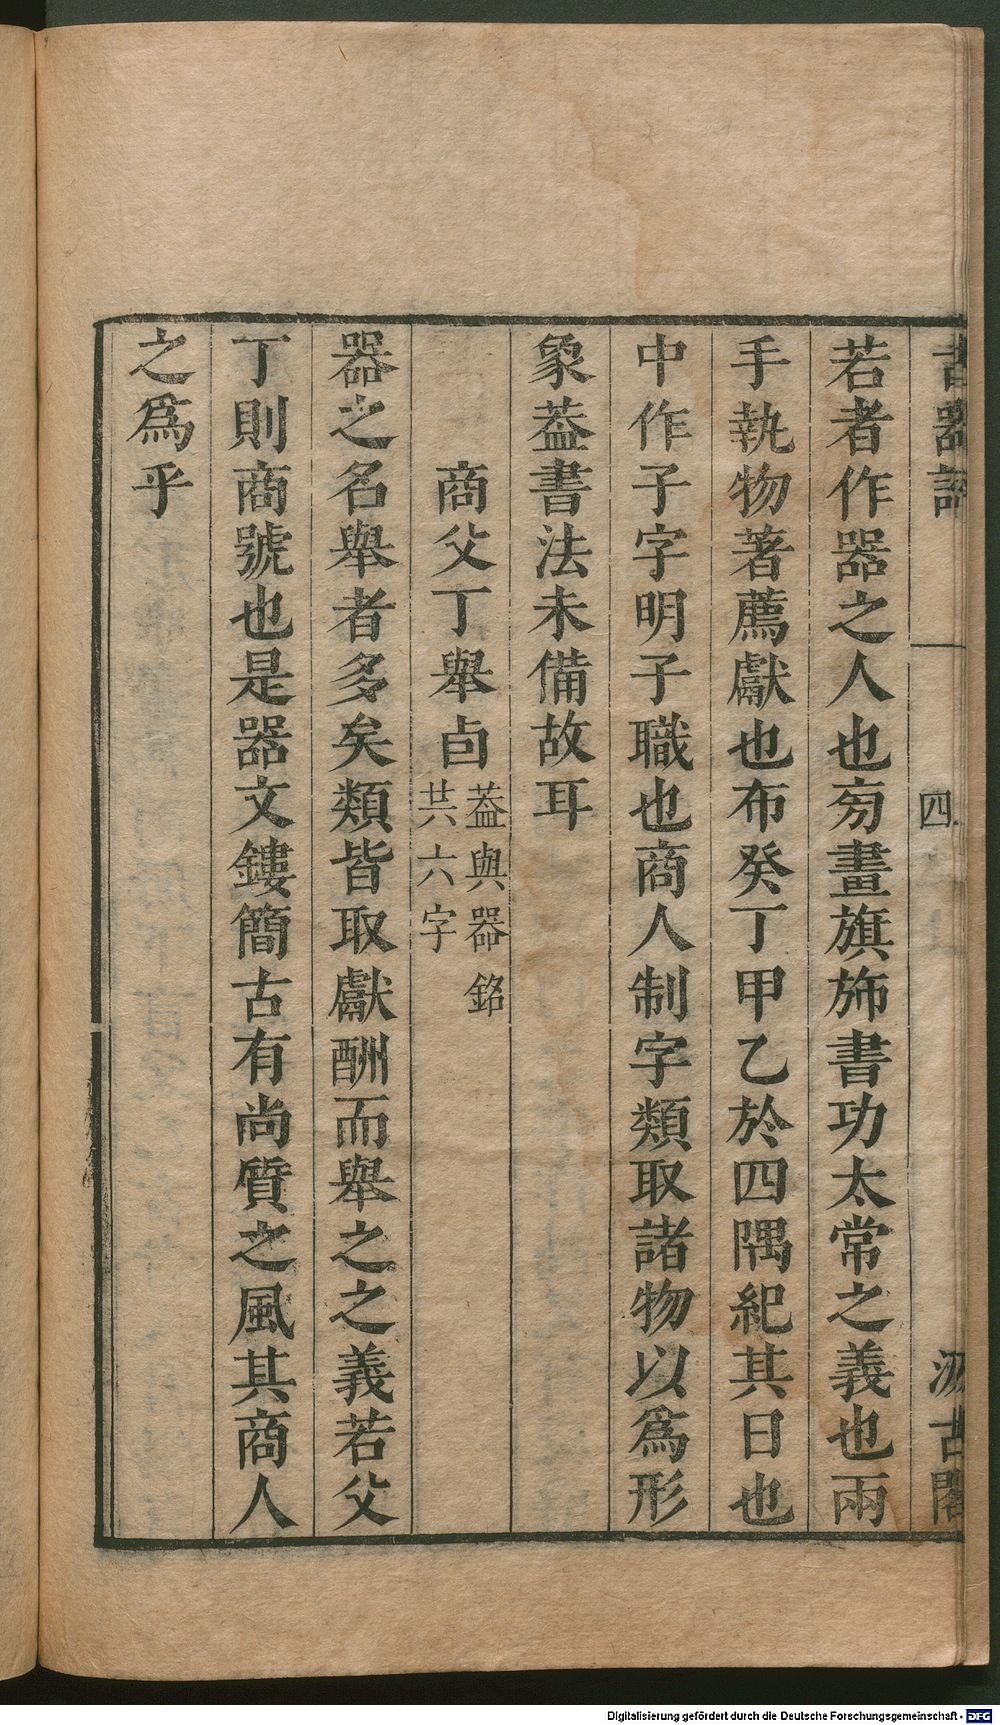 古器評
四
汲古閣
若者作器之人也㫄畫旗斾書功太常之義也兩
手執物著薦獻也布癸丁甲乙於四隅紀其日也
中作子字明子職也商人制字類取諸物以為形
象葢書法未備故耳
商父丁舉卣葢與器銘
共六字
器之名舉者多矣類皆取獻酬而舉之之義若父
丁則商號也是器文鏤簡古有尚質之風其商人
之為乎
Digitalisierung gefördert durch die Deutsche Forschungsgemeinschaft - DFG